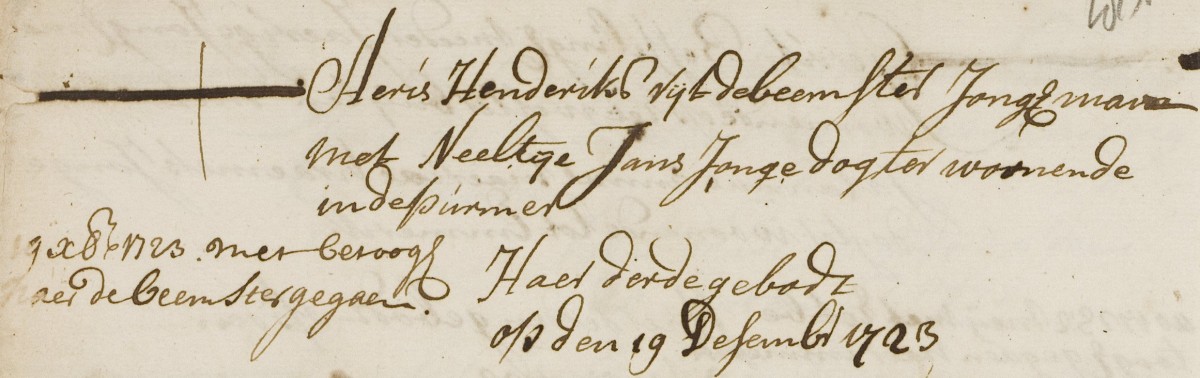 Aeris Henderiks uyt de beemster Jongman
met Neeltye Jans Jonge dogter woonende
in de purmer
19 Xbr 1723. met betoog
naer de beemster gegaen.
Haer derde gebodt
op den 19 Desembr 1723